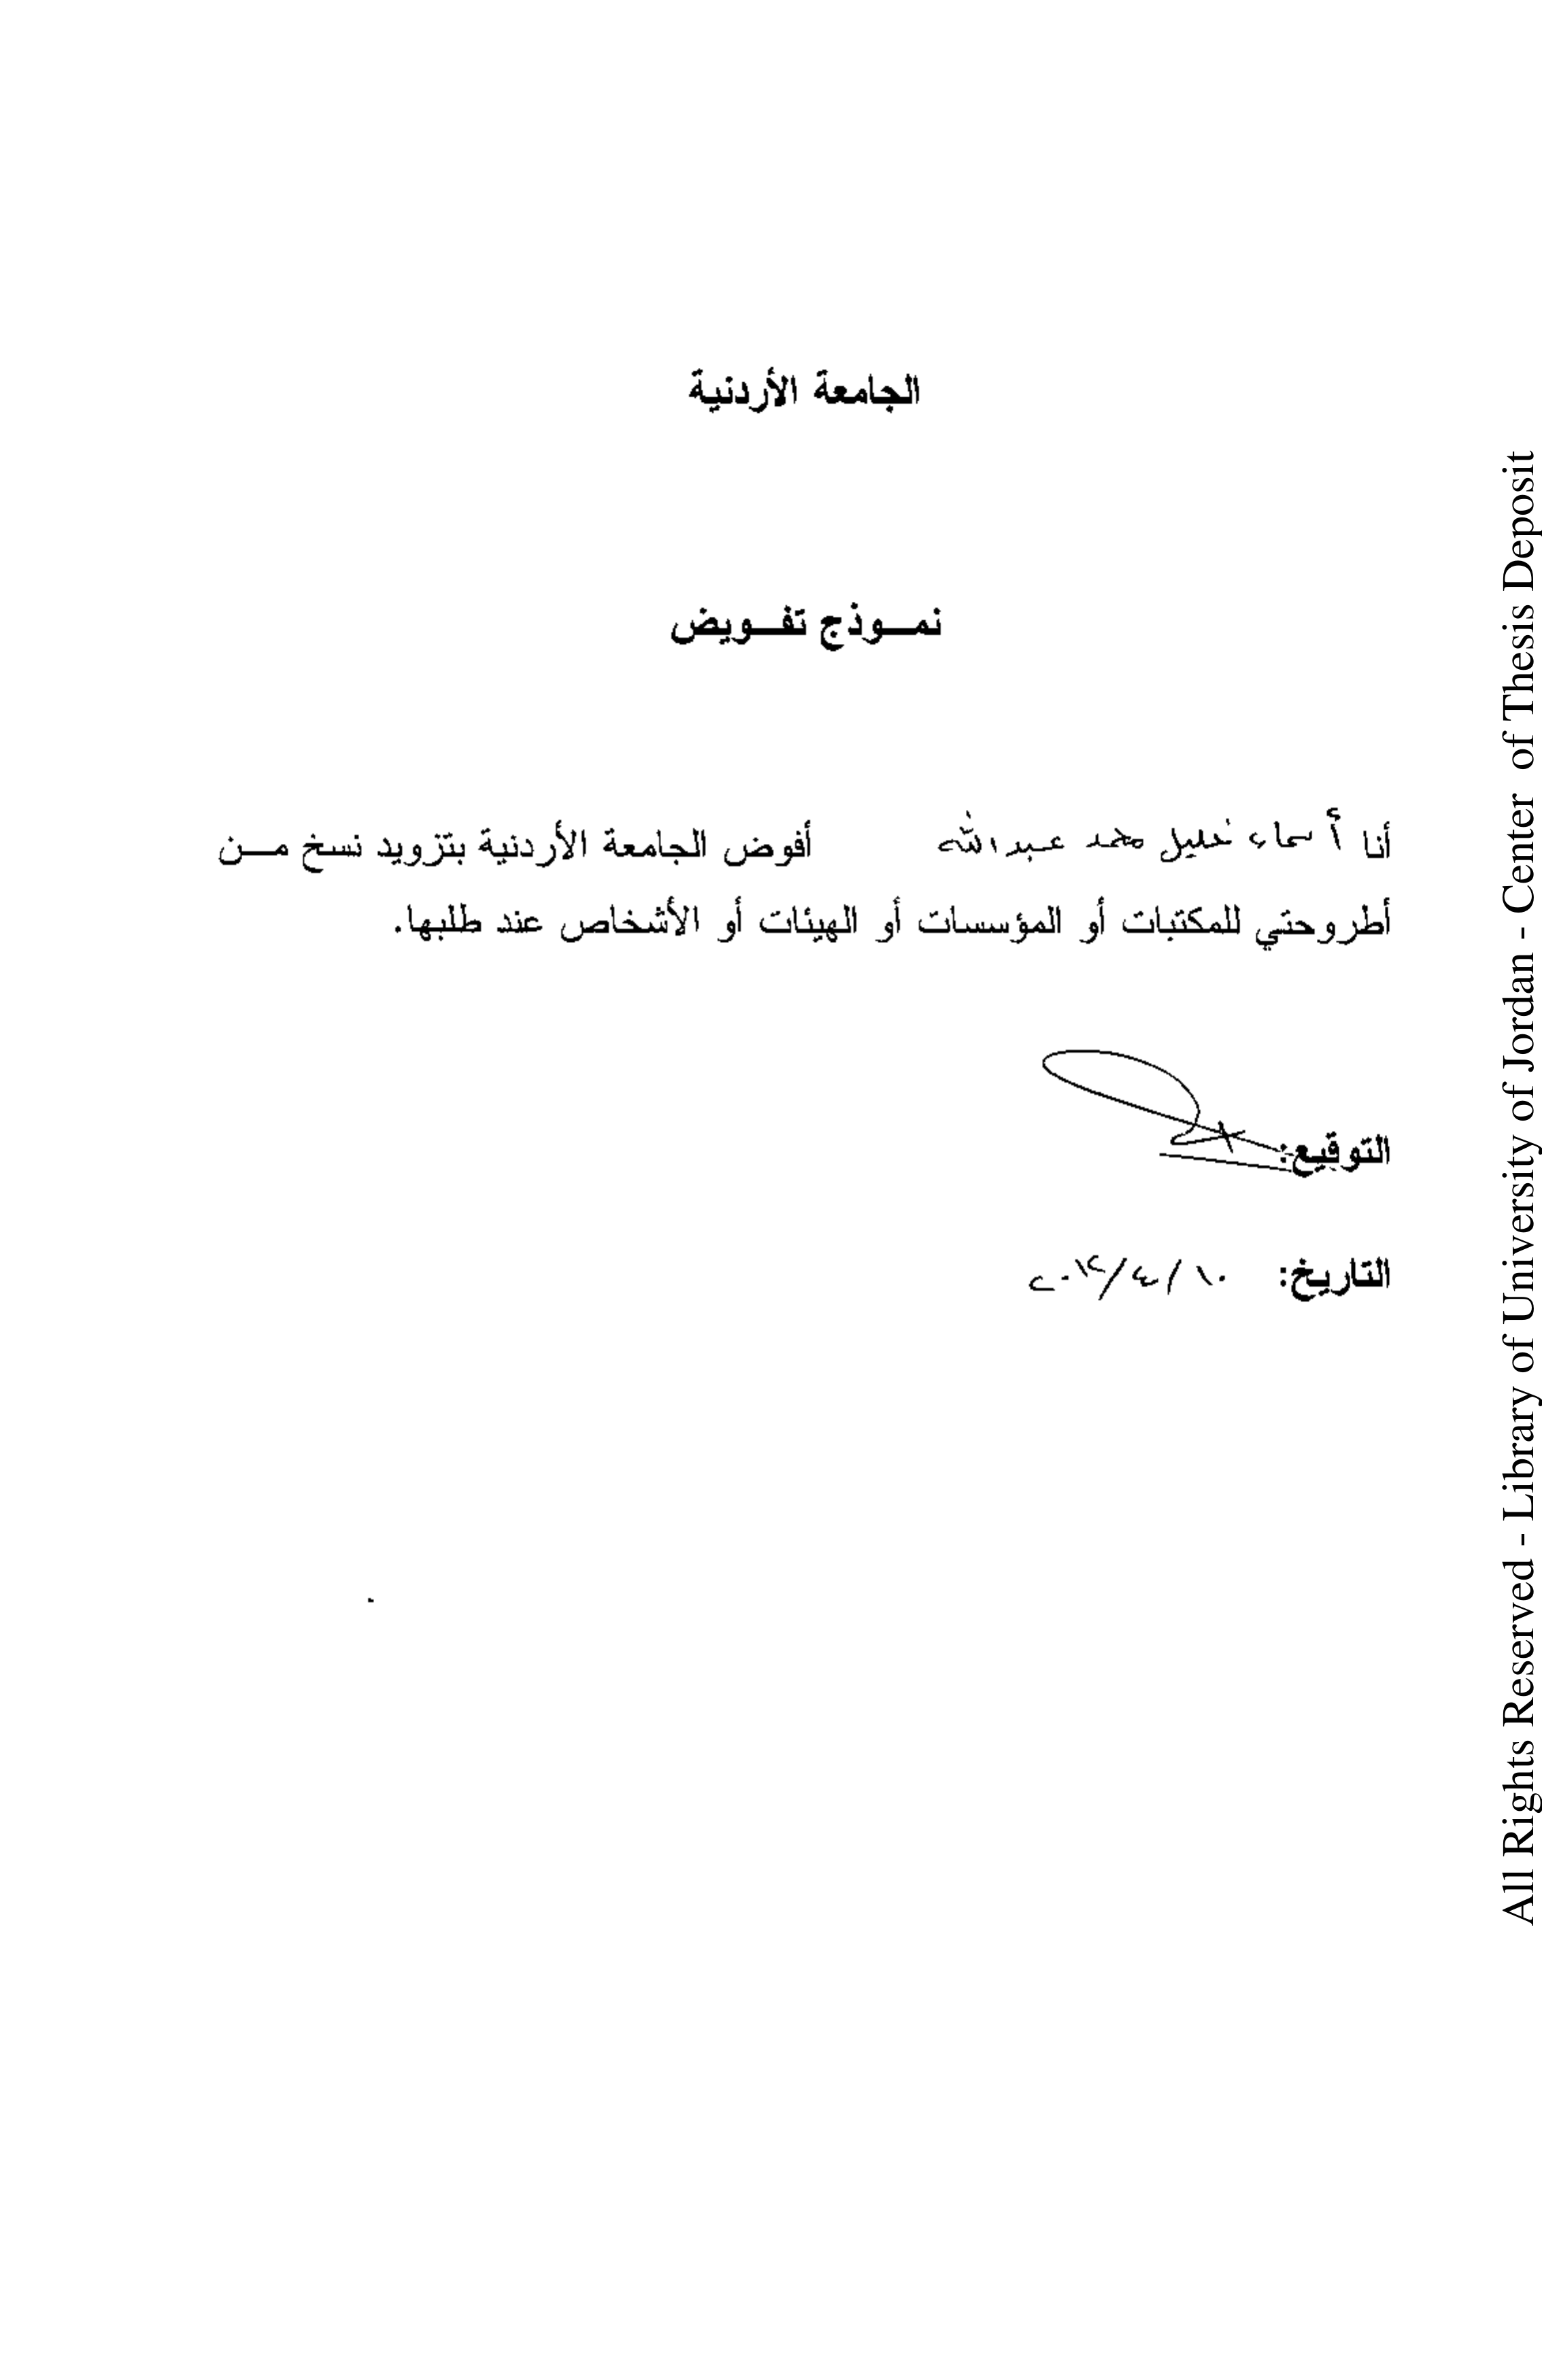 الجامعة الأردنية
نمـــوذج تفـــويض
أنا أسماء خليل محمد عبدالله أفوض الجامعة الأردنية بتزويد نسخ مـــن
أطروحتي للمكتبات أو المؤسسات أو الهيئات أو الأشخاص عند طلبها.
التوقيع:
التاريخ: ١٠/٤/٢٠١٢
All Rights Reserved - Library of University of Jordan - Center of Thesis Deposit